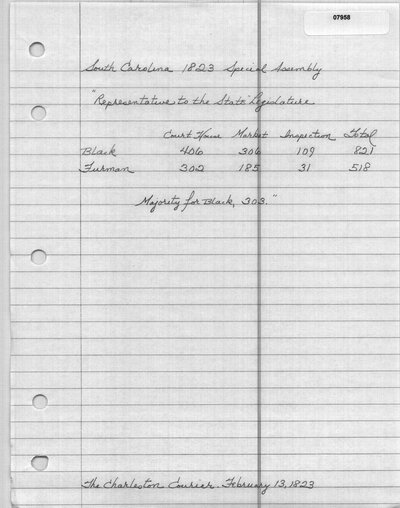 07958
South Carolina 1823 Special Assembly
"Representative to the State Legislature
Court House Market Inspection Total
Black 406 306 109 821
Furman 302 185 31 518
Majority for Black, 303."
The Charleston Courier. February 13, 1823